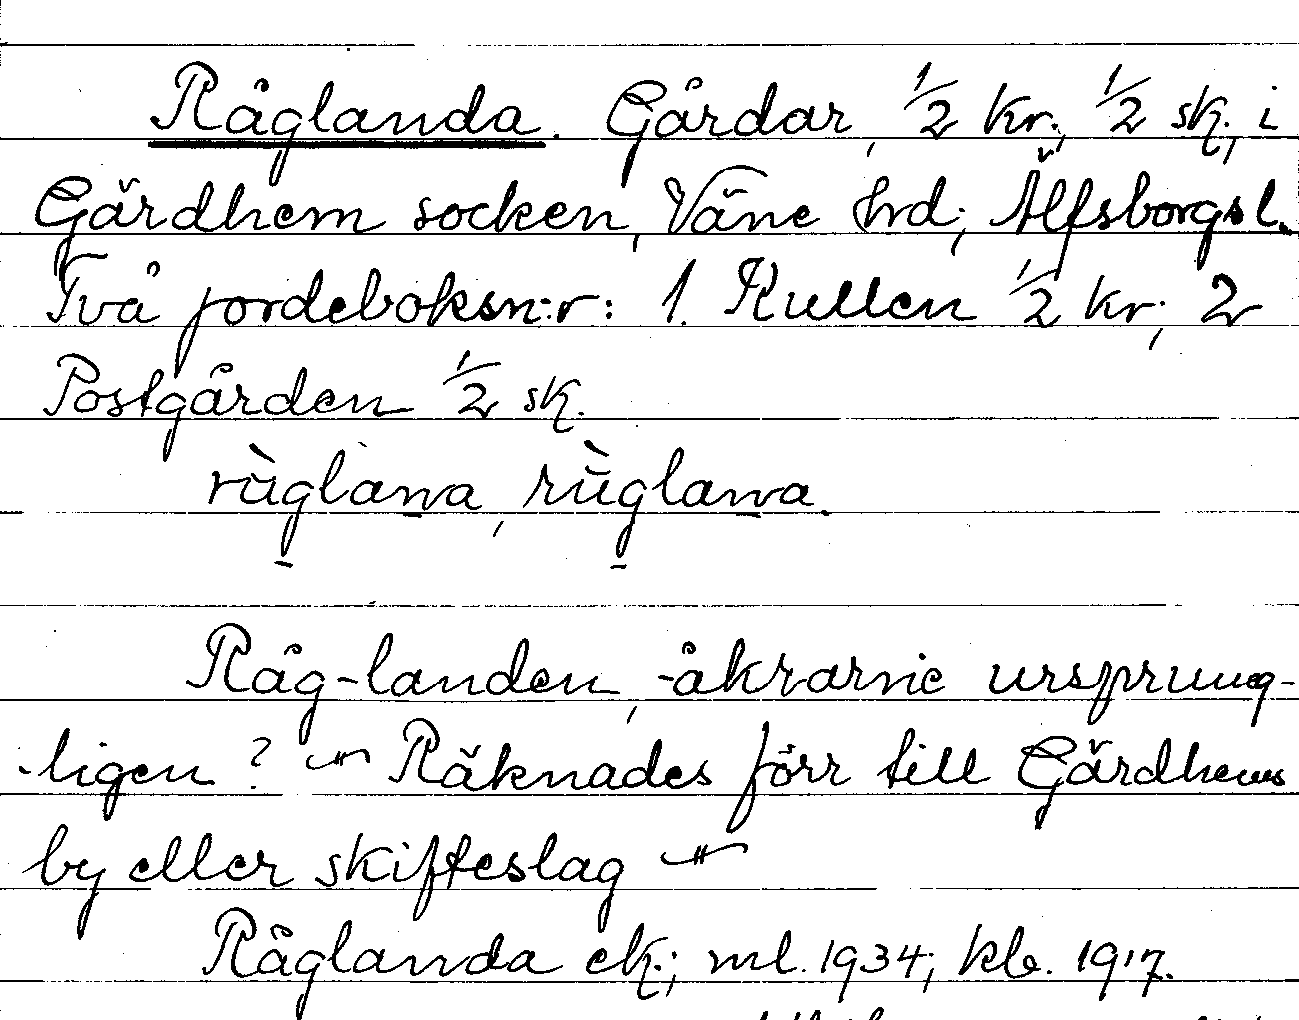 Råglanda. Gårdar, 1/2 kr., 1/2 sk., i
Gärdhem socken, Väne hrd, Älfsborgs l.
Två jordeboksn:r: 1. Kullen 1/2 kr., 2
Postgården 1/2 sk.
rùglana, rùglana.
Råg-landen, -åkrarne ursprung-
-ligen? Räknades förr till Gärdhems
by eller skifteslag
Råglanda ek.; ml. 1934; kb. 1917.